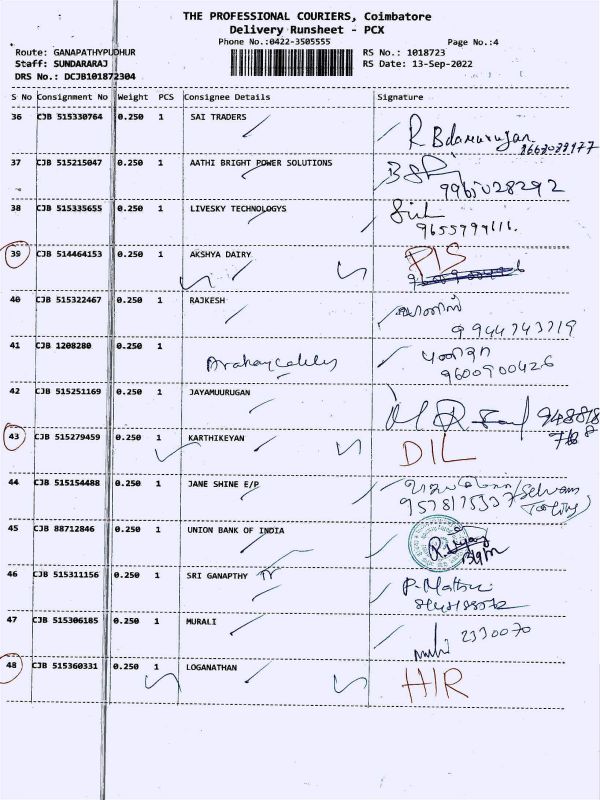 THE PROFESSIONAL COURIERS, Coimbatore
Delivery Runsheet - PCX
Phone No.:0422-3505555
Page No.:4
Route: GANAPATHYPUDHUR
RS No.: 1018723
Staff: SUNDARARAJ
RS Date: 13-Sep-2022
DRS No.: DCJB101872304
S No Consignment No Weight PCS Consignee Details Signature
36 CJB 515330764 0.250 1 SAI TRADERS
37 CJB 515215047 0.250 1 AATHI BRIGHT POWER SOLUTIONS
9965028292
38 CJB 515335655 0.250 1 LIVESKY TECHNOLOGYS
39 CJB 514464153 0.250 1 AKSHYA DAIRY
P/S
40 CJB 515322467 0.250 1 RAJKESH
9944743719
41 CJB 1208280 0.250 1
9600900426
42 CJB 515251169 0.250 1 JAYAMUURUGAN
43 CJB 515279459 0.250 1 KARTHIKEYAN DIL
44 CJB 515154488 0.250 1 JANE SHINE E/P
45 CJB 88712846 0.250 1 UNION BANK OF INDIA
46 CJB 515311156 0.250 1 SRI GANAPTHY
47 CJB 515306185 0.250 1 MURALI
2330070
48 CJB 515360331 0.250 1 LOGANATHAN HIR